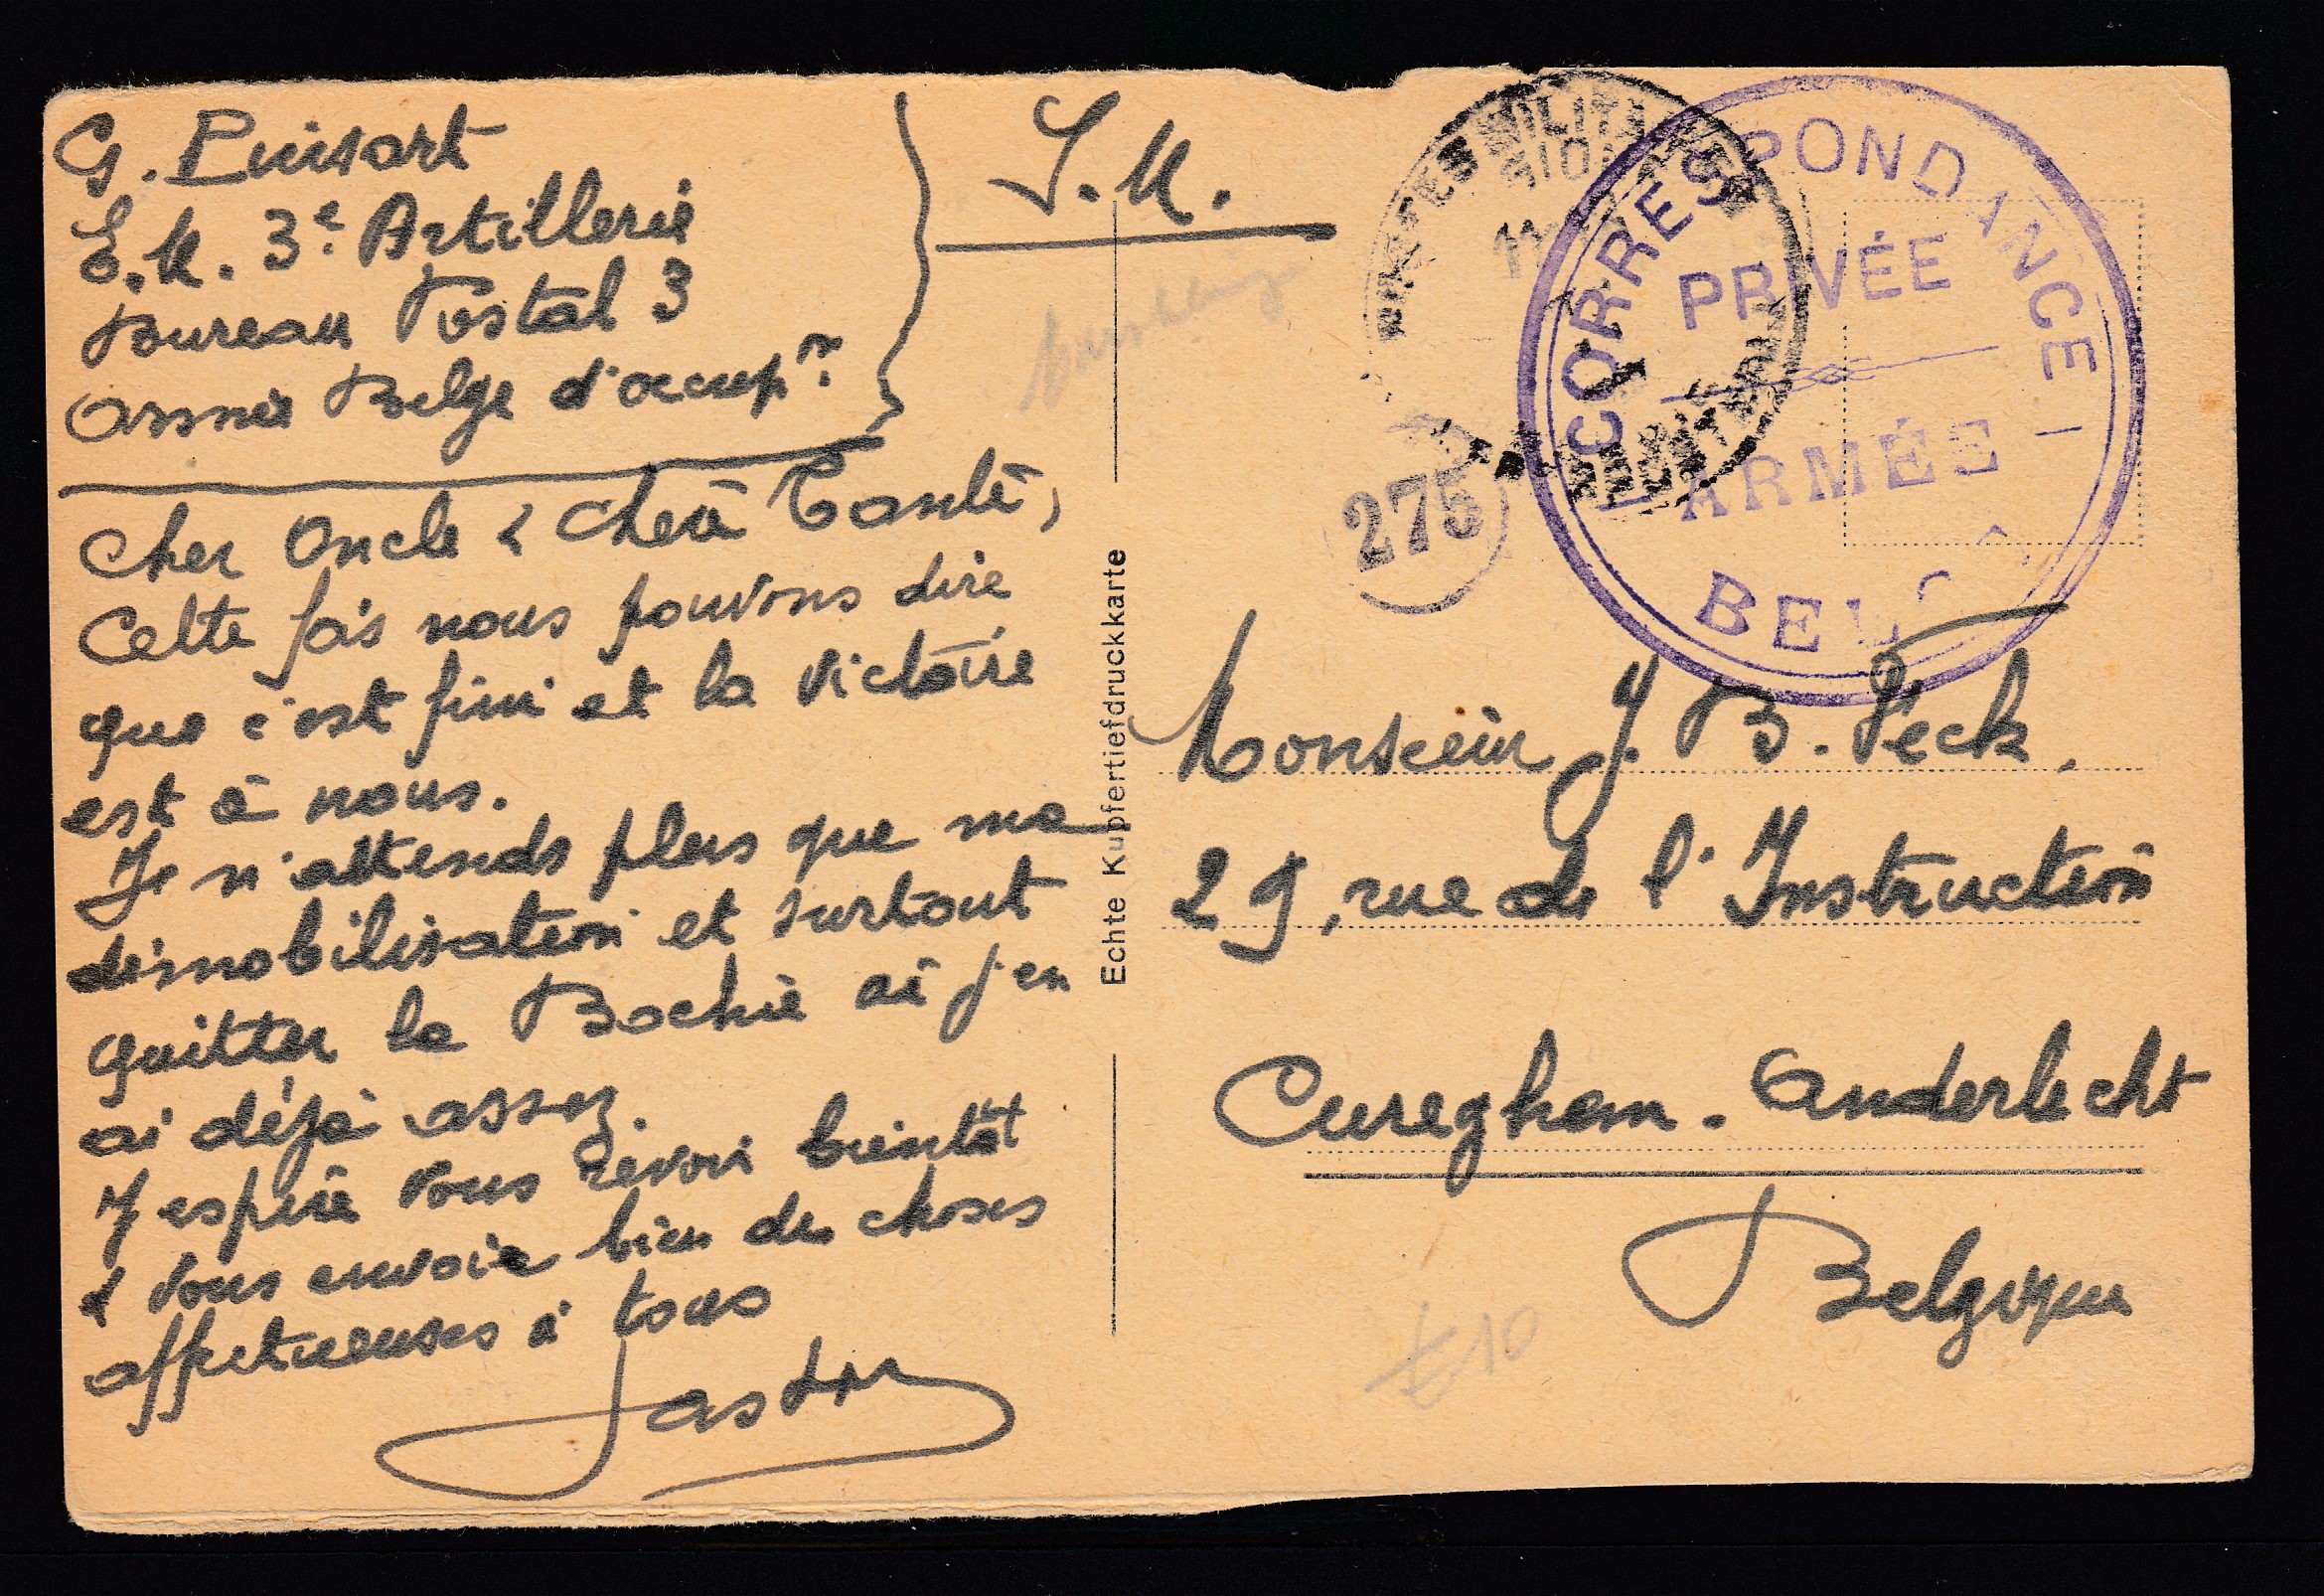 G. Puissart
E.M. 3e Artillerie
Bureau Postal 3
Armée Belge d'occupn
Cher Oncle & Chère Tante,
Cette fois nous pouvons dire
que c'est fini et la victoire
est à nous.
Je n'attends plus que ma
démobilisation et surtout
quitter la Bochie où j'en
ai déjà assez.
J'espère vous revoir bientôt
& vous envoie bien des choses
affectueuses à tous
S.M.
Echte Kupfertiefdruckkarte
POSTES MILITAIRES
11
275
CORRESPONDANCE
PRIVÉE
ARMÉE
BELGE
Monsieur J. B. Peck.
29, rue de l'Instruction
Cureghem. Anderlecht
Belgique
£10